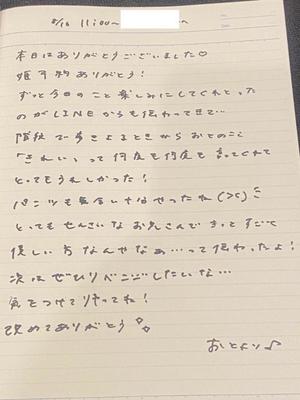 8/16 11:00〜 〜
本日はありがとうございました♡
ありがとう!
ずっと今日のこと楽しみにしてくれとった
のがLINEからも伝わってきて…
階段で歩きよるときからおとのこと
「きれい」って何度も何度も言ってくれて
とってもうれしかった!
パンツも気合いはいやったね(><)
とってもせんさいなお兄さんで きっとすごく
優しい方なんやなぁ…って伝わったよ!
次はぜひリベンジしたいな…
気をつけて ね!
改めてありがとう
おとより♪